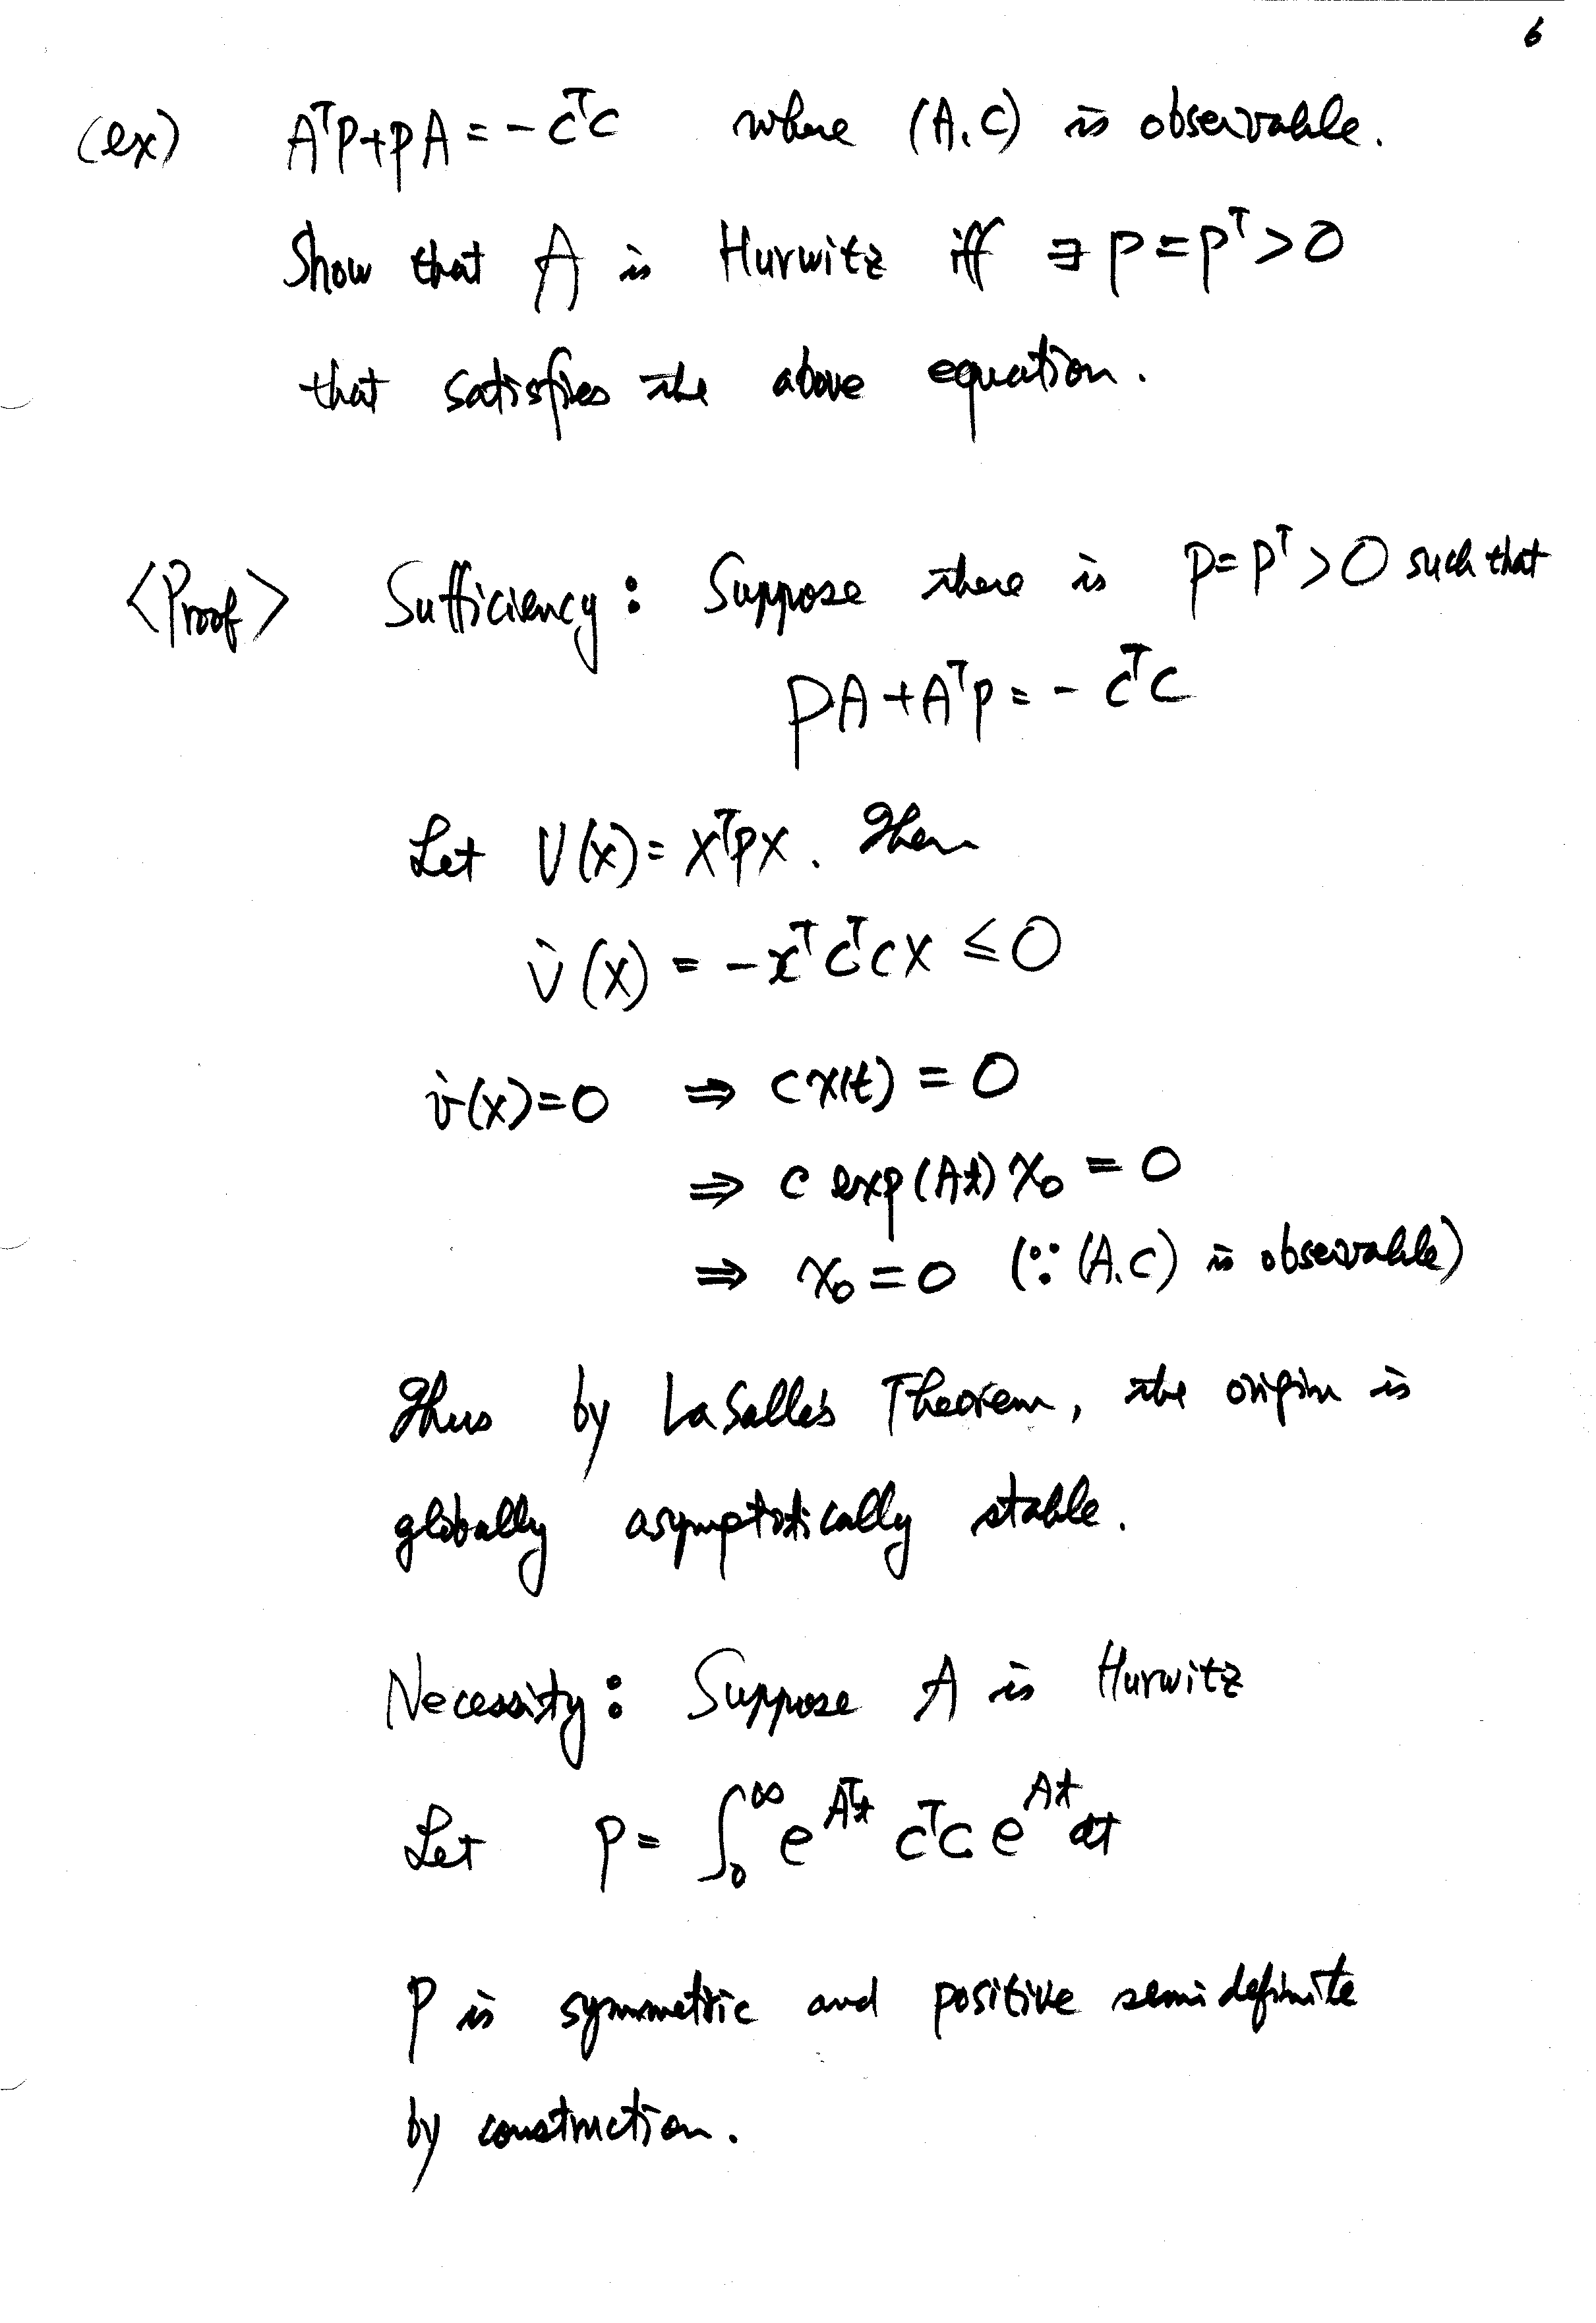 6
(ex) AᵀP+PA = -CᵀC where (A.C) is observable.
Show that A is Hurwitz iff ∃ P=Pᵀ>0
that satisfies the above equation.
<Proof> Sufficiency : Suppose there is P=Pᵀ>0 such that
PA+AᵀP = - CᵀC
Let V(x)= xᵀPx. Then
V̇(x) = -xᵀCᵀCx ≤ 0
V̇(x)=0 ⇒ Cx(t) = 0
⇒ C exp(At) x₀ = 0
⇒ x₀ = 0 (∵ (A.C) is observable)
Thus by LaSalle's Theorem, the origin is
globally asymptotically stable.
Necessity : Suppose A is Hurwitz
Let P = ∫₀^∞ e^{Aᵀt} CᵀC e^{At} dt
P is symmetric and positive semidefinite
by construction.